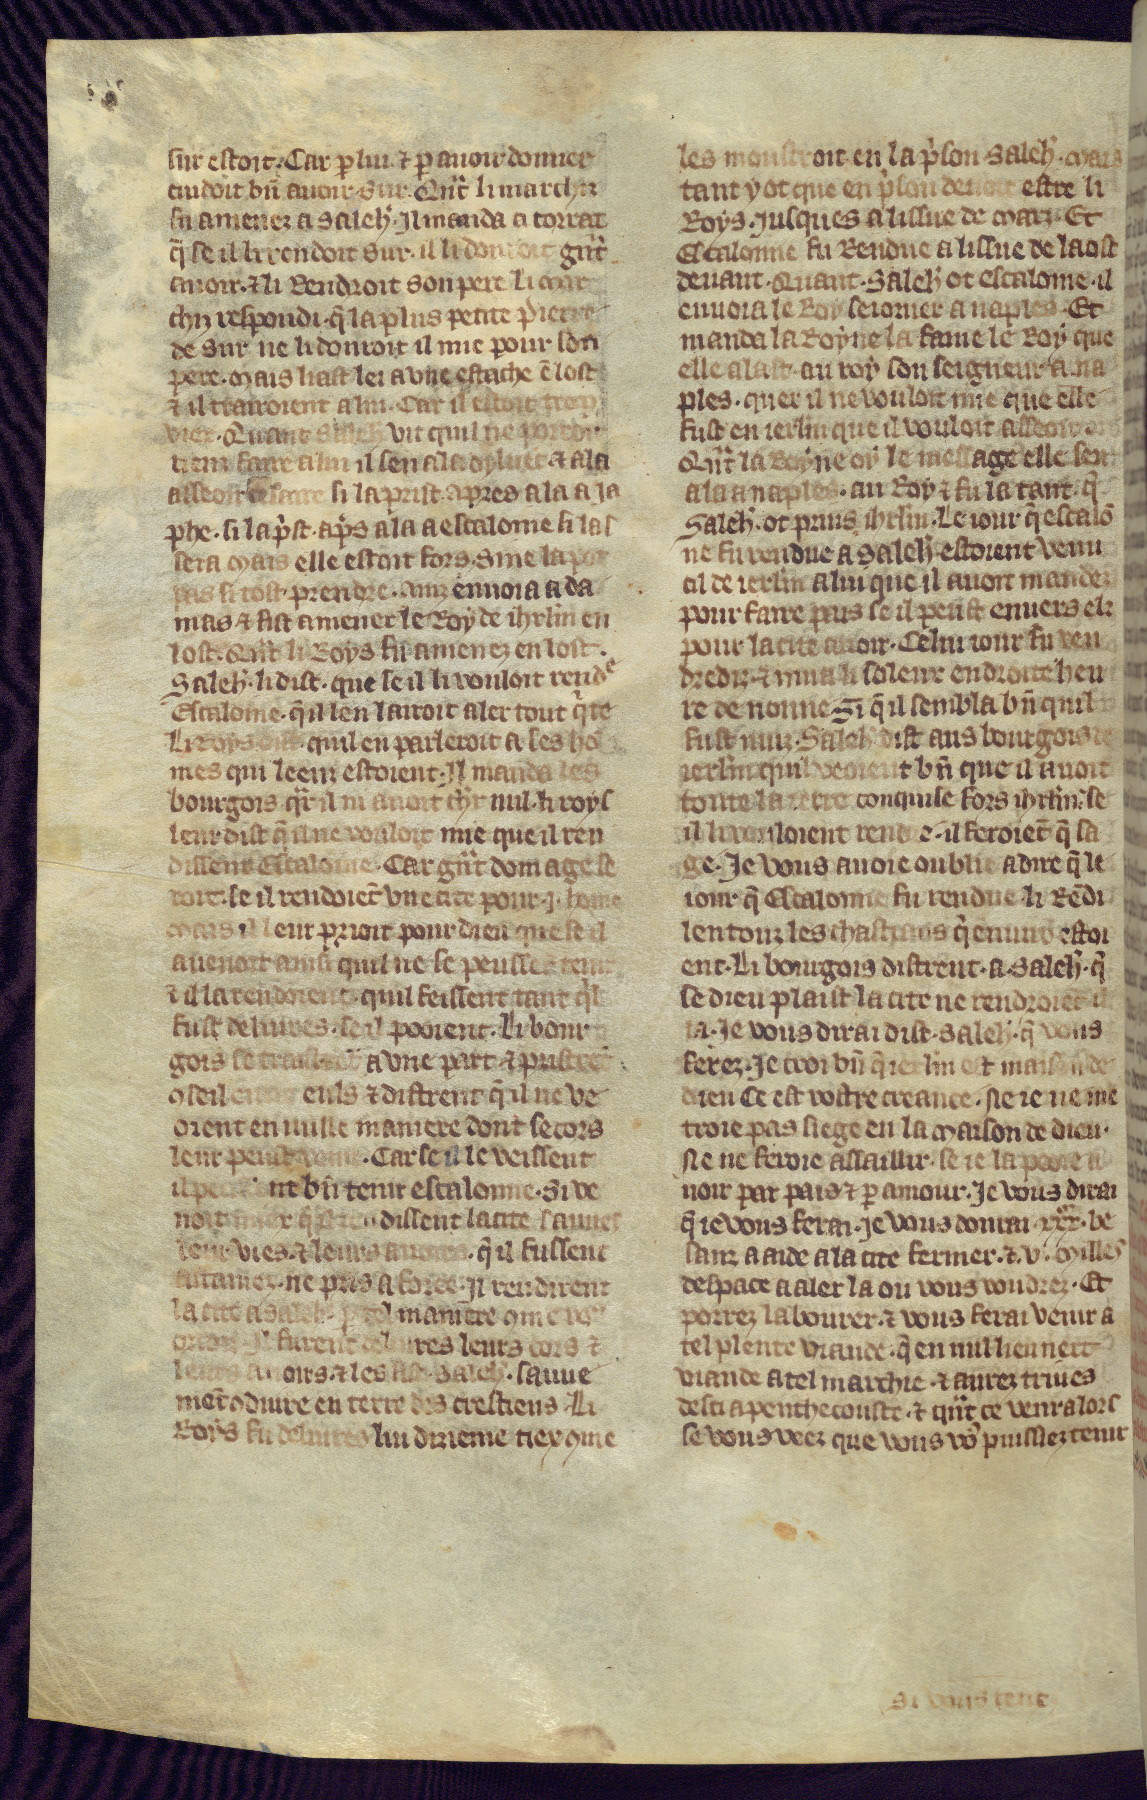 sur estoit. Car p̲ lui ⁊ p̲ auoir donner
cuidoit bn̄ auoir sur. Qn̄t li marchiz
fu amenez a saleh̄. Il manda a corrat
q̄ se il li rendoit sur. il li donroit gn̄t
auoir. ⁊ li Rendroit son pere Li mar
chiz respondi. q̄ la plus petite pierre
de sur ne li donroit il mie pour son
pere. Mais liast lei a vne estache ē lost
⁊ il trairoient a lui. Car il estoit trop
viex. Quant saleh̄ vit quil ne porroit
riens faire a lui il sen ala & ala
asseoir cesaire si la prist apres ala a Ja
phe. si la p̍st. ap̍s ala a escalone si las
sera Mais elle estoit fors. si ne la pot
pas si tost prendre. ainz enuoia a da
mas ⁊ fist amener le Roy de ih̄rlm en
lost. Qn̄t li Roys fu amenez en lost.
Saleh̄. li dist. que se il li vouloit rend̾e
Escalone. q̄ il len lairoit aler tout q̍te
Li Roys dist quil en parleroit a ses ho
mes qui leenz estoient. Il manda les
bourgois qr̄ il ni auoit ch̄r nul. li roys
leur dist q̄ il ne vouloit mie que il ren
dissent Escalone. Car gn̄t domage se
roit. se il rendoiēt vne cite pour .j. home
Mais il leur prioit pour dieu que se il
auenoit ainsi quil ne se peussent tenir
⁊ il la rendoient. quil feissent tant q̍l
fust deliures. se il pooient. Li bour
gois se traistrēt a vne part. ⁊ pristrēt
ꝯseil entre euls ⁊ distrent q̄ il ne ve
oient en nulle maniere dont secors
leur peust venir. Car se il le veissent
il peussent bn̄ tenir escalonne. Si ve
noit miex q̄ il rendissent la cite sauues
leur vies. ⁊ leurs auoirs. q̄ il fussent
afamez. ne pris a force. Il rendirent
la cite a saleh̄. p̲ tel maniere ꝯme vo9
orroiz. Il furent deliures leurs cors ⁊
leurs auoirs. ⁊ les fist. saleh̄. sauue
mēt ꝯduire en terre des crestiens. Li
Roys fu deliures lui dizieme tiex ꝯme
les moustroit en la p̍son saleh̄. Mais
tant y ot que en p̍son deuoit estre li
Roys. Jusques a lissue de Marz. Et
Escalonne fu Rendue a lissue de laost
deuant. Quant. Saleh̄ ot escalone. il
enuoia le Roy seiorner a naples. Et
manda la Royne la fame le Roy que
elle alast. au roy son seigneur a na
ples. quer il ne vouloit mie que elle
fust en ierlm que il vouloit asseoir
Qn̄t la Royne oy le message elle sen
ala a naples. au Roy ⁊ fu la tant. q̄
Saleh̄. ot prins ih̄rlm. Le iour q̄ escalō
ne fu rendue a saleh̄ estoient venu
cil de ierlm a lui que il auoit mandez
pour faire pais se il peust enuers els
pour la cite auoir. Celui iour fu ven
dredi. ⁊ mua li soleux en droite heu
re de nonne Si q̄ il sembla bn̄ quil
fust nuiz. Saleh̄ dist aus bourgois de
ierlm quil veoient bn̄ que il auoit
toute la terre conquise fors ih̄rlm. se
il li vouloient rendre. il feroiēt q̄ sa
ge. Je vous auoie oublie a dire q̄ le
iour q̄ Escalonne fu rendue li Rēdi
len touz les chastiaus q̍ enuiro estoi
ent. Li bourgois distrent. a Saleh̄. q̄
se dieu plaist la cite ne rendroiēt il
ia. Je vous dirai dist. Saleh̄. q̄ vous
ferez. Je croi bn̄ q̄ ierlm est maison de
dieu Ce est vostre creance. Ne ie ne me
troie pas siege en la Maison de dieu.
Ne ne feroie assaillir. se ie la pooie a
uoir par pais ⁊ p̲ amour. Je vous dirai
q̄ ie vous ferai. Je vous donrai .xxx. be
sanz a aide a la cite fermer. ⁊ .v. Milles
despace a aler la ou vous voudrez. Et
porrez labourer. ⁊ vous ferai venir a
tel plente viande. q̄ en nul lieu nert
viande a tel marchie. ⁊ aurez triues
desci a penthecouste. ⁊ qn̄t ce venra lors
se vous veez que vous vo9 puissiez tenir
si vous tenir